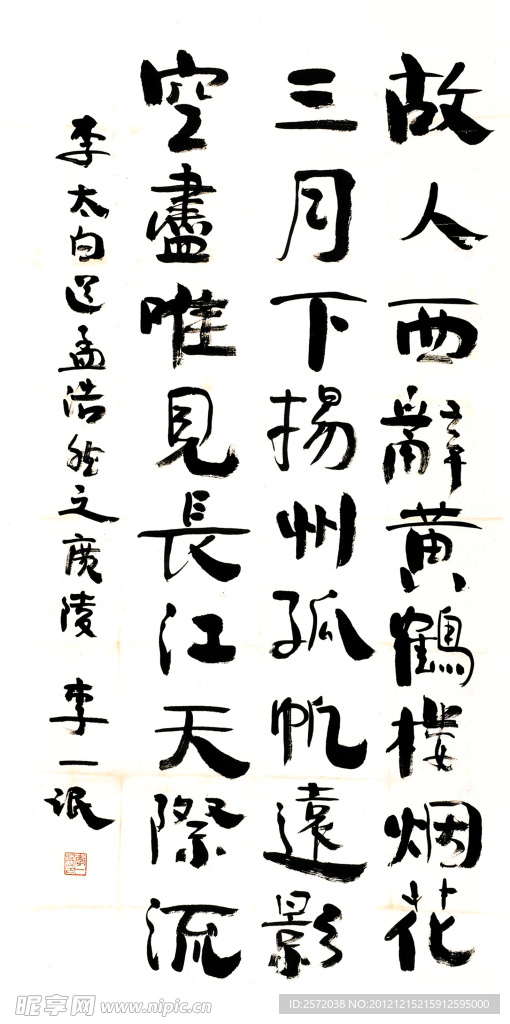 故人西辭黄鶴樓烟花
三月下揚州孤帆遠影
空盡唯見長江天際流
李太白送孟浩然之廣陵 李一氓
昵享网 www.nipic.cn
ID:2572038 NO:20121215215912595000